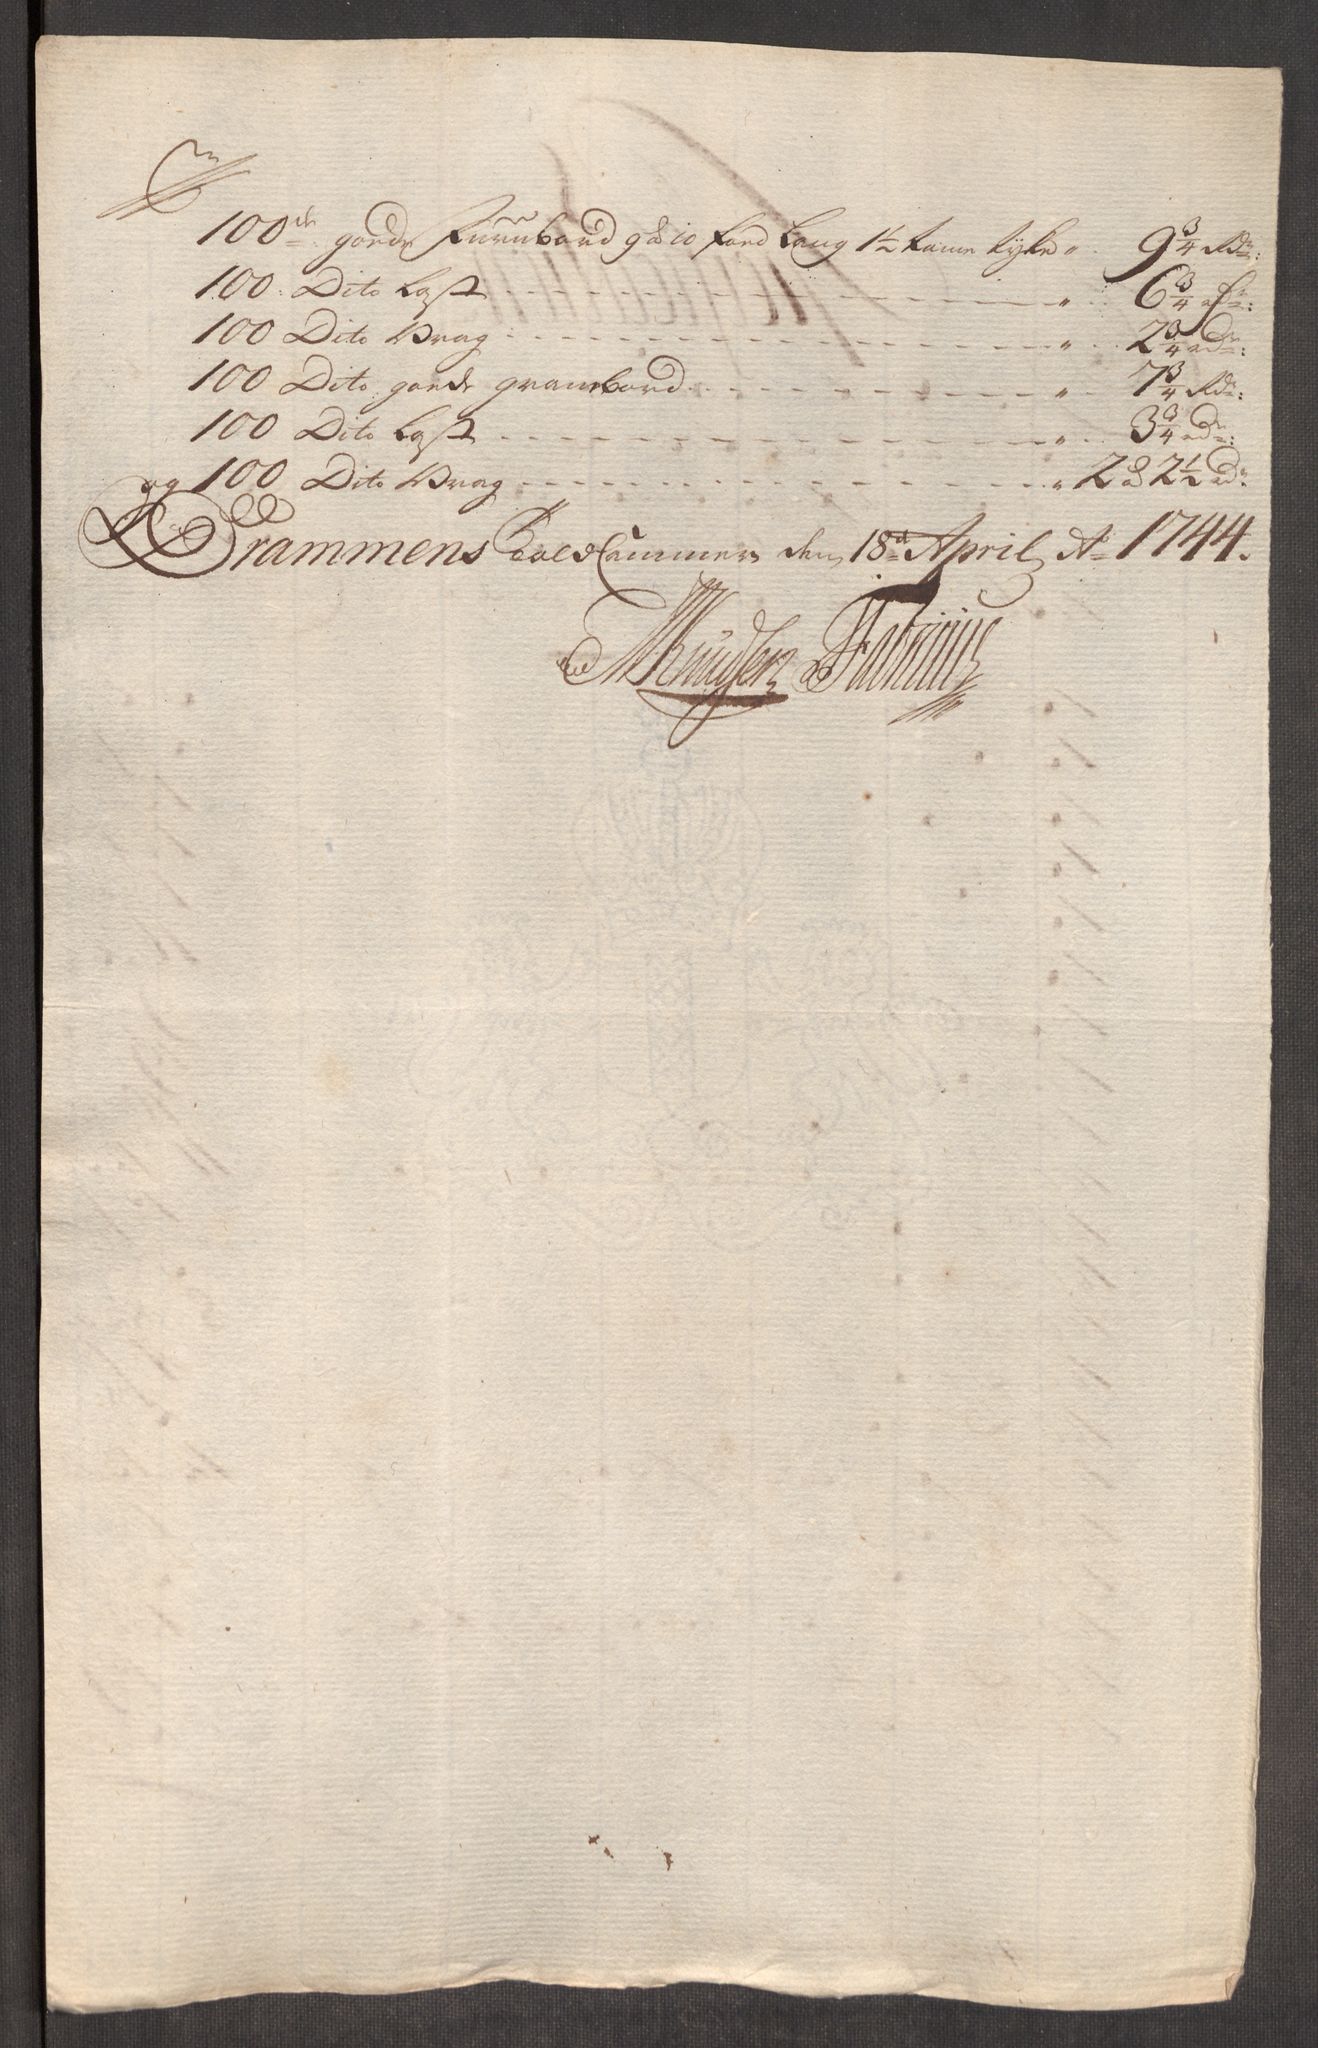 100de goede Furrubord 9 à 10 foed Lang 1½ tomme tyke " 9¾ Rdr:
100 Dito Last " 6¾ rdr:
100 Dito Vrag " 2¾ rdr:
100 Dito goede granbord " 7¾ Rdr:
100 Dito Last " 3¾ rdr:
og 100 Dito Vrag " 2 à 2½ rdr.
Drammens Told Cammer den 18de April Ao 1744.
Knudsen Fabritius